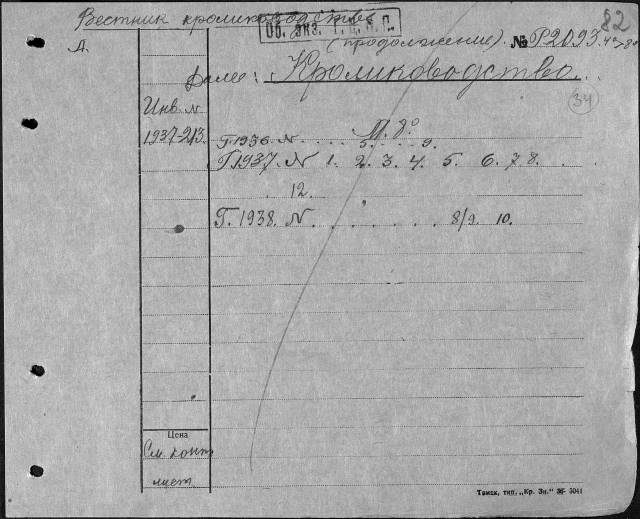 Вестник кролиководства
82
Об. экз. Т.Ц.Н.Б.
(продолжение). № Р2093
А.
далее: Кролиководство
34
Инв. №
М. 8°
1937-213. Г. 1936. № . . . . 5. . . . 9.
Г. 1937. № 1. 2. 3. 4. 5. 6. 7. 8. .
. 12.
Г. 1938. № . . . . . . . 8/9. 10.
Цена
См. конт
лист
Томск, тип. „Кр. Зн.“ 36 3041